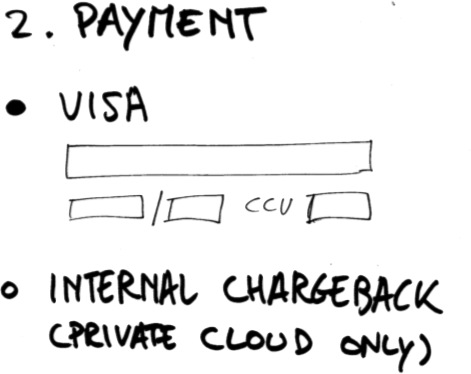 2. PAYMENT
● VISA
/ CCV
○ INTERNAL CHARGEBACK
(PRIVATE CLOUD ONLY)